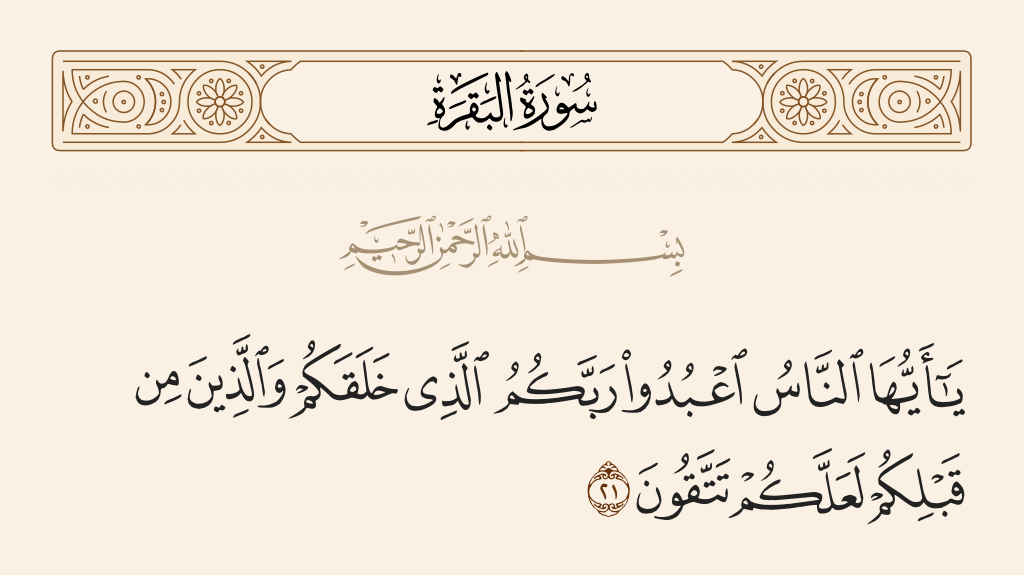 سُورَةُ البَقَرَةِ
بِسْمِ ٱللَّهِ ٱلرَّحْمَٰنِ ٱلرَّحِيمِ
يَـٰٓأَيُّهَا ٱلنَّاسُ ٱعْبُدُوا۟ رَبَّكُمُ ٱلَّذِى خَلَقَكُمْ وَٱلَّذِينَ مِن
قَبْلِكُمْ لَعَلَّكُمْ تَتَّقُونَ ٢١